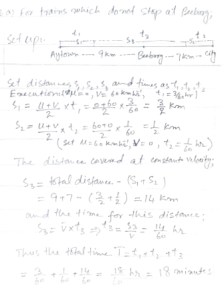 (a) For trains which do not stop at Beeburg,
Set up:
t₁ t₃ t₂
s₁ s₃ s₂
Aytown ---- 9km --- Beeburg --- 7km - City
Set distances s₁, s₂, s₃ and times as t₁, t₂, t₃
Execution
S₁ = u+v/2 × t₁ = 0+60/2 × 3/60 = 3/2 km
S₂ = u+v/2 × t₂ = 60+0/2 × 1/60 = 1/2 km
(Set u = 60 km h⁻¹, v = 0, t₂ = 1/60 hr)
The distance covered at constant velocity,
S₃ = total distance - (S₁ + S₂)
= 9 + 7 - (3/2 + 1/2) = 14 km
and the time for this distance;
S₃ = v × t₃ ⇒ t₃ = S₃/v = 14/60 hr.
Thus the total time T = t₁ + t₂ + t₃
= 3/60 + 1/60 + 14/60 = 18/60 hr = 18 minutes